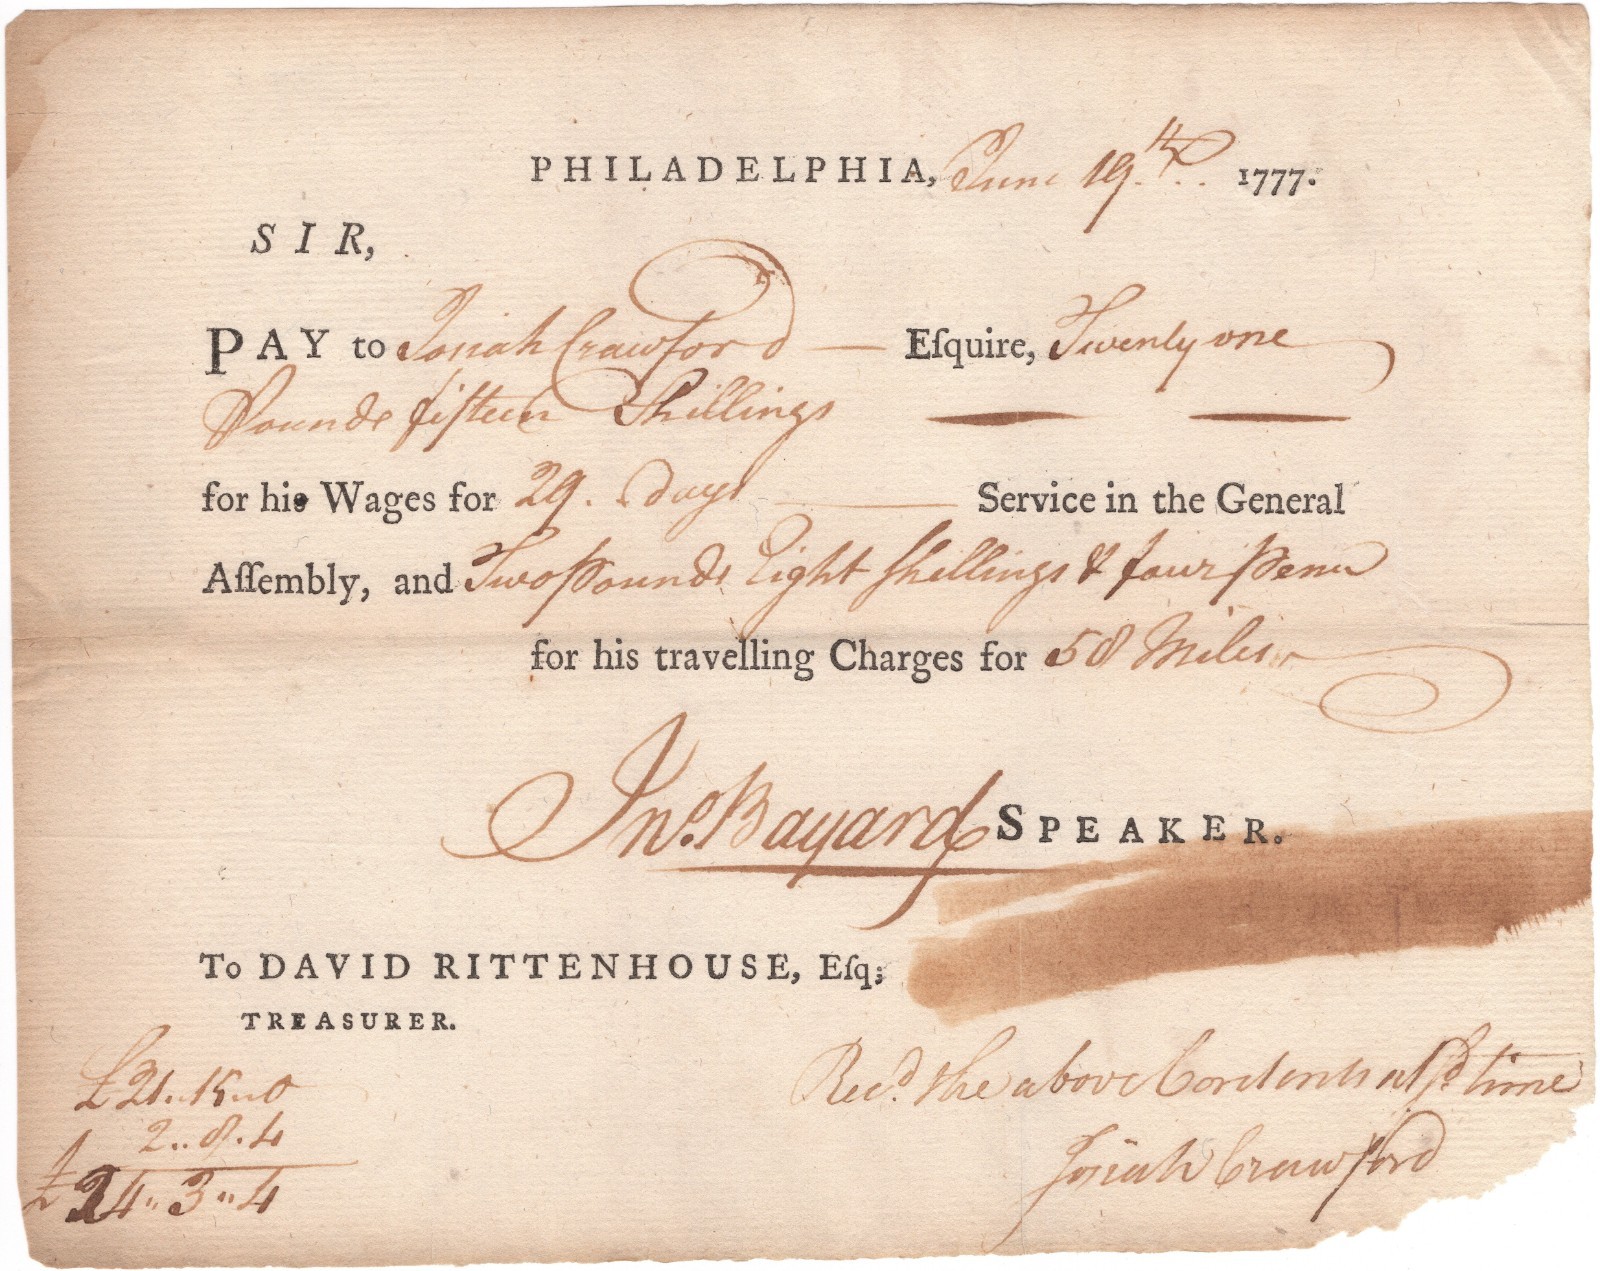 PHILADELPHIA, June 19.th 1777.
SIR,
PAY to Josiah Crawford — Eſquire, Twenty one
Pounds fifteen Shillings
for his Wages for 29. days — Service in the General
Aſſembly, and Two pounds Eight ſhillings & four pence
for his travelling Charges for 58 Miles
Jno. Bayard SPEAKER.
To DAVID RITTENHOUSE, Eſq;
TREASURER.
£21..15..0
2..8.4
£24..3..4
Rec.d the above Contents at Sd. time
Josiah Crawford